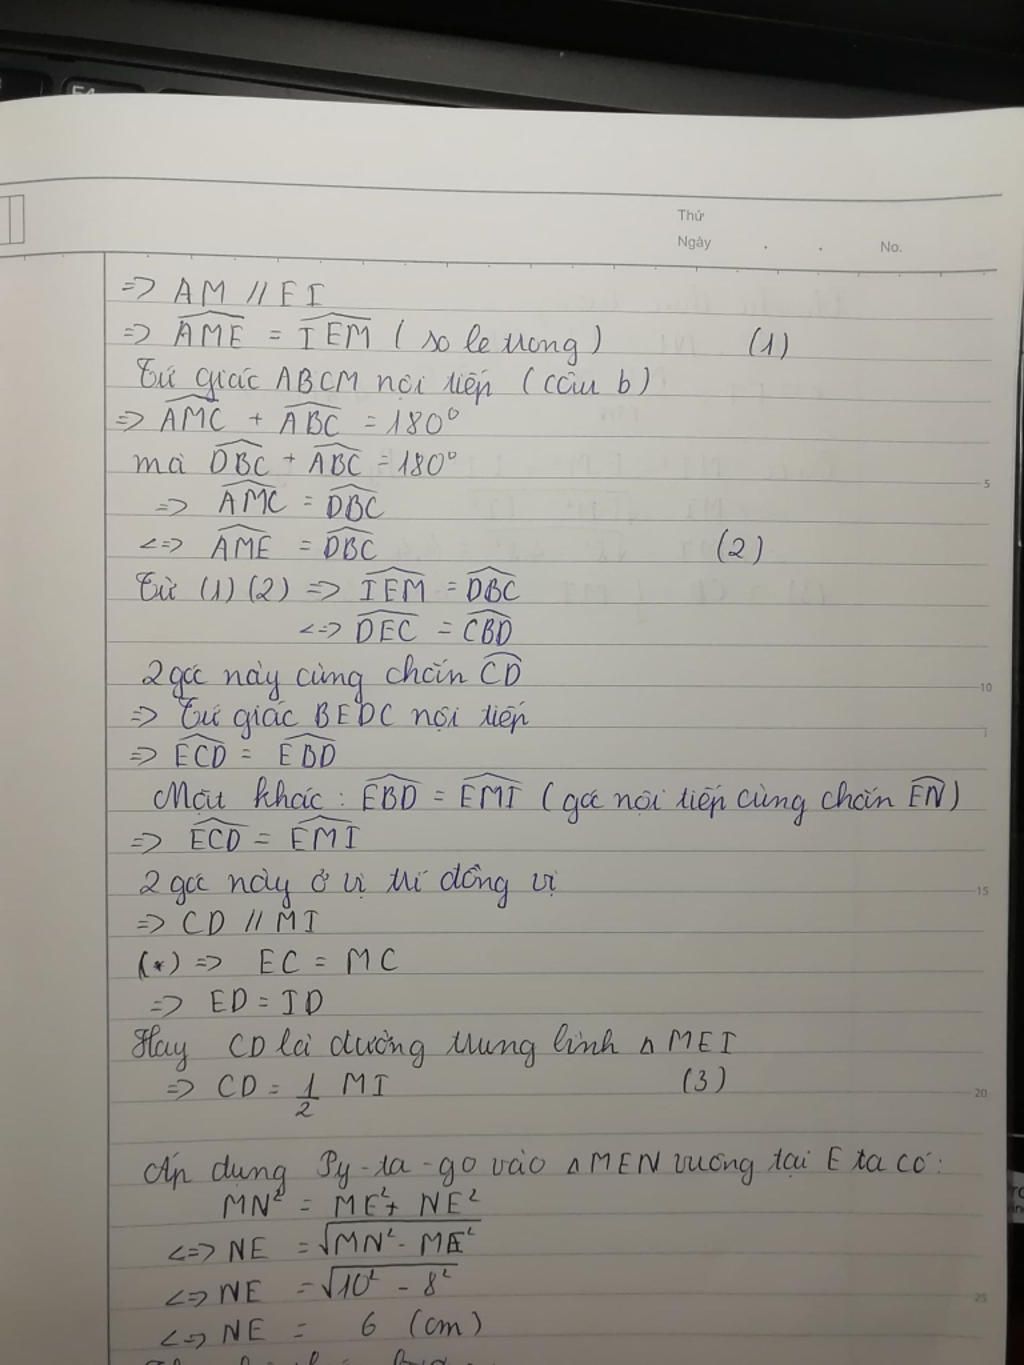 F4
Thứ
Ngày . . No.
=> AM // EI
=> AME = IEM ( so le trong ) (1)
Tứ giác ABCM nội tiếp ( câu b )
=> AMC + ABC = 180°
mà DBC + ABC = 180°
=> AMC = DBC
<=> AME = DBC (2)
Từ (1) (2) => IEM = DBC
<=> DEC = CBD
2 góc này cùng chắn CD
=> Tứ giác BEDC nội tiếp
=> ECD = EBD
Mặt khác : EBD = EMI ( góc nội tiếp cùng chắn EN )
=> ECD = EMI
2 góc này ở vị trí đồng vị
=> CD // MI
(*) => EC = MC
=> ED = ID
Hay CD là đường trung bình Δ MEI
=> CD = 1/2 MI (3)
Áp dụng Py-ta-go vào Δ MEN vuông tại E ta có :
MN² = ME² + NE²
<=> NE = √MN² - ME²
<=> NE = √10² - 8²
<=> NE = 6 (cm)
5
10
15
20
25